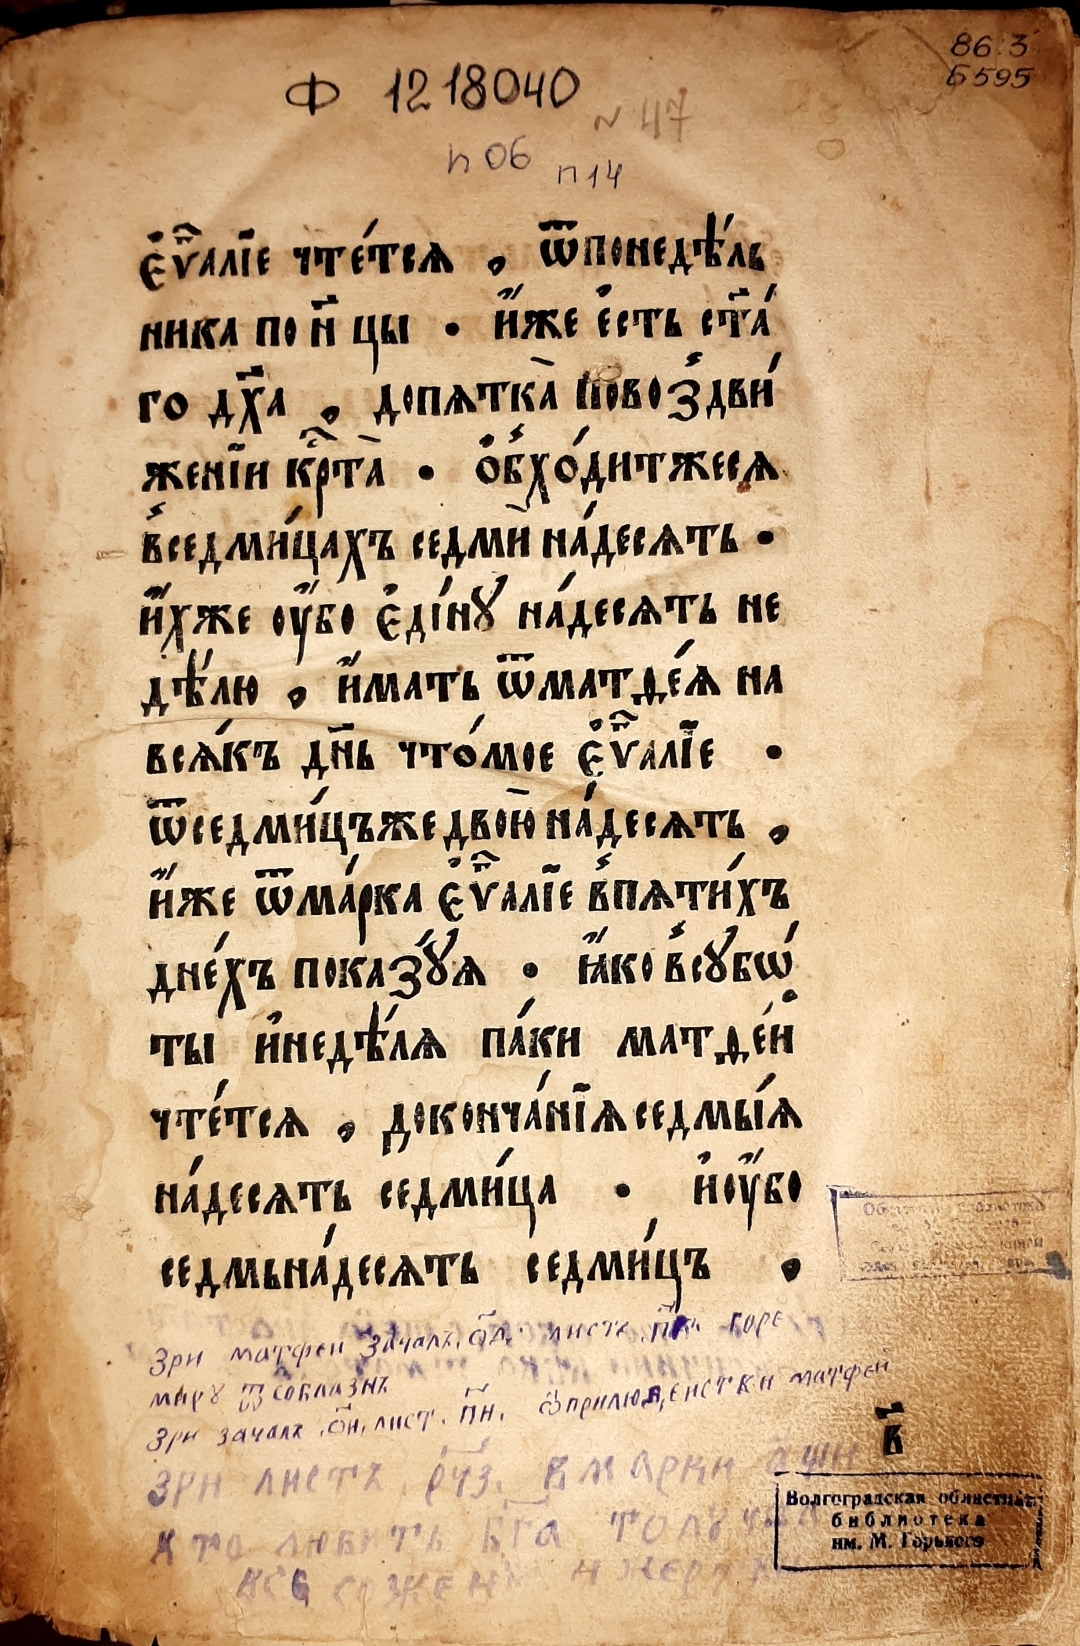 86.3
Б595
Ф 1218040
N 47
п 06 п 14
є҆ѵⷢ҇алїе чте́тсѧ , ѿпонедѣ́ль
ника по н҃цы · и҆́же є҆сть ст҃а́
го дх҃а , допѧтка̀ повоздви́
женїи крⷭ҇та̀ · ѻ҆бхо́дитжесѧ
в̾седми́цахъ седмѝ на́десѧть ·
и҆́хже ѹ҆́бо є҆ді́нꙋ на́десѧть не
дѣ́лю , и҆́мать ѿматѳе́ѧ на
всѧ́къ дн҃ь что́мое є҆ѵⷢ҇алїе ·
ѿседми́цъже двою̀ на́десѧть ,
и҆́же ѿма́рка є҆ѵⷢ҇алїе в̾пѧти́хъ
дне́хъ показꙋ́ѧ · ꙗ҆́ко в̾сꙋбѡ́
ты и҆недѣ́лѧ па́ки матѳе́й
чте́тсѧ , доконча́нїѧ седмы́ѧ
на́десѧть седми́ца · и҆ѹ҆́бо
седмьна́десѧть седми́цъ ,
зри матфеи зачалъ, о҃д. листъ п҃к горе
миру ѿ соблазнъ
зри зачалъ, о҃и, лист. п҃и. матфеи
зри листъ, рч҃з. в марки
кто любитъ бг҃а
в҃
Волгоградская областная
библиотека
им. М. Горького